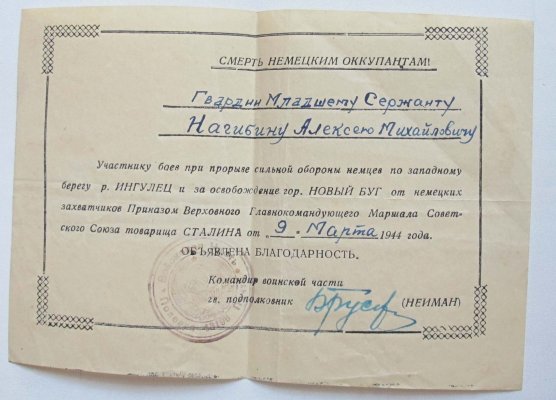 СМЕРТЬ НЕМЕЦКИМ ОККУПАНТАМ!
Гвардии Младшему Сержанту
Нагибину Алексею Михайловичу
Участнику боев при прорыве сильной обороны немцев по западному
берегу р. ИНГУЛЕЦ и за освобождение гор. НОВЫЙ БУГ от немецких
захватчиков Приказом Верховного Главнокомандующего Маршала Совет-
ского Союза товарища СТАЛИНА от „9“ Марта 1944 года.
ОБЪЯВЛЕНА БЛАГОДАРНОСТЬ.
Командир воинской части
гв. подполковник (НЕИМАН)